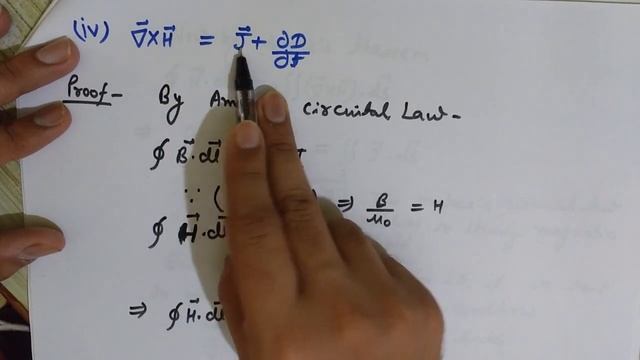 (iv) ∇⃗×H⃗ = J⃗ + ∂D/∂t
Proof- By Am circuital Law-
∮ B⃗.dl⃗
∵ ( ) ⇒ B/μ₀ = H
∮ H⃗.dl
⇒ ∮ H⃗.dl